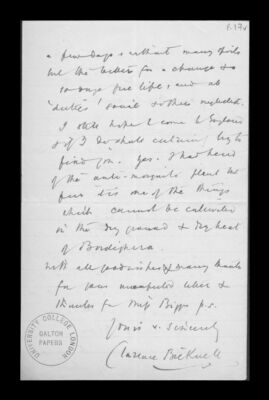 a few days & without many
but the better for a change &
free life, and all
duties social & others neglected.
I still hope to come to England
& if I do shall certainly try to
find you. Yes. I had heard
of the anti-mosquito plant but
fear it is one of the things
which cannot be cultivated
in the dry ground & dry heat
of Bordighera.
With all good wishes & many thanks
for your unexpected letter &
thanks for Miss Biggs p.s.
Yours v. sincerely
Clarence Bicknell
UNIVERSITY COLLEGE LONDON
GALTON
PAPERS